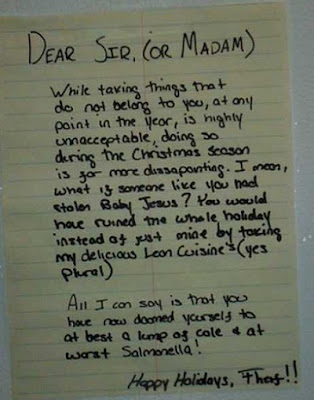 DEAR SIR, (OR MADAM)
While taking things that
do not belong to you, at any
point in the year, is highly
unnacceptable, doing so
during the Christmas season
is far more dissapointing. I mean,
what if someone like you had
stolen Baby Jesus? You would
have ruined the whole holiday
instead of just mine by taking
my delicious Lean Cuisine's (yes
plural)
All I can say is that you
have now doomed yourself to
at best a lump of cole & at
worst Salmonella!
Happy Holidays, Thief!!